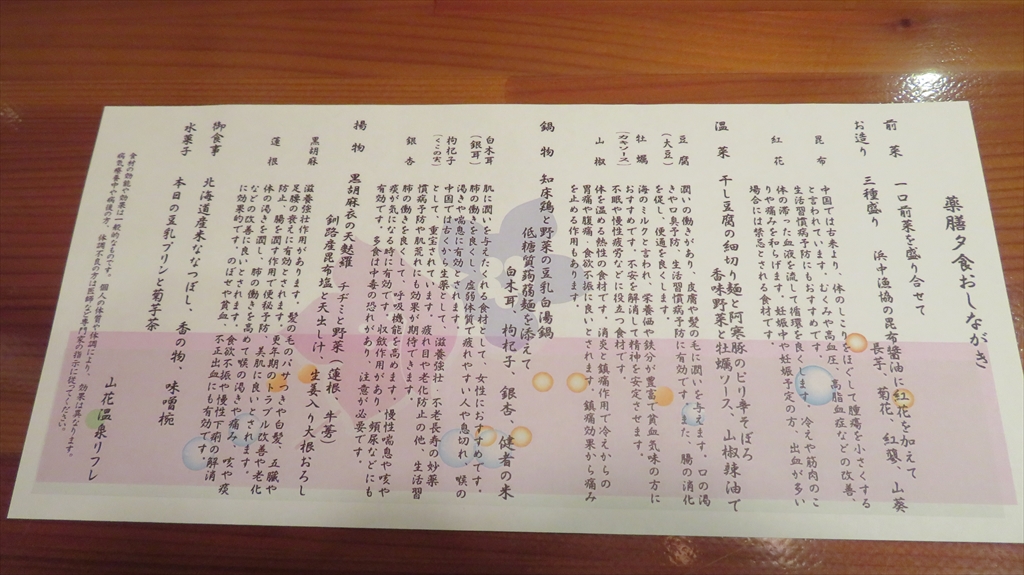 薬膳夕食おしながき
前菜 一口前菜を盛り合せて
お造り 三種盛り 浜中漁協の昆布醤油に紅花を加えて
長芋、菊花、紅蓼、山葵
昆布 中国では古来より、体のしこりをほぐして腫瘍を小さくする
と言われています。むくみや高血圧、高脂血症などの改善、
生活習慣病予防にもおすすめです。
紅花 体の滞った血液を流して循環を良くします。冷えや筋肉のこ
りや痛みを和らげます。妊娠中や妊娠予定の方、出血が多い
場合には禁忌とされる食材です。
温菜 干し豆腐の細切り麺と阿寒豚のピリ辛そぼろ
香味野菜と牡蠣ソース、山椒辣油で
豆腐 潤いの働きがあり、皮膚や髪の毛に潤いを与えます。口の渇
(大豆) きや口臭予防、生活習慣病予防に有効です。また、腸の消化
を促し、便通を良くします。
牡蠣 海のミルクと言われ、栄養価や鉄分が豊富で貧血気味の方に
(カキソース) おすすめです。不安を解消して精神を安定させます。
不眠や慢性疲労などに役立つ食材です。
山椒 体を温める熱性の食材です。消炎と鎮痛作用で冷えからの
胃痛や腹痛・食欲不振に良いとされます。鎮痛効果から痛み
を止める作用もあります。
鍋物 知床鶏と野菜の豆乳白湯鍋
低糖質蒟蒻麺を添えて
白木耳、枸杞子、銀杏、健者の米
白木耳 肌に潤いを与えたくれる食材として、女性におすすめです。
(銀耳) 肺の働きを良くし、虚弱体質で疲れやすい人や息切れ、喉の
渇きや喘息に有効とされます。
枸杞子 中国では古くから生薬として、滋養強壮・不老長寿の妙薬
(くこの実) として、重宝されています。疲れ目や老化防止の他、生活習
慣病予防や肌荒れにも効果が期待できます。
銀杏 肺の働きを良くして、呼吸機能を高めます。慢性喘息や咳や
痰が気になる時に有効です。収斂作用があり、頻尿などにも
有効です。多食は中毒の恐れがあり、注意が必要です。
揚物 黒胡麻衣の天麩羅 チヂミと野菜(蓮根 牛蒡)
釧路産昆布塩と天出し汁、生姜入り大根おろし
黒胡麻 滋養強壮作用があります。髪の毛のパサつきや白髪、五臓や
足腰の衰えに有効とされます。更年期のトラブル改善や老化
防止、腸を潤す作用で便秘予防、美肌に良いとされます。
蓮根 体の渇きを潤し、肺の働きを高めて喉の渇きや痛み、咳や痰
などの改善に良いとされます。食欲不振や慢性下痢の解消
に効果的です。のぼせや貧血、不正出血にも有効です。
御食事 北海道産米ななつぼし、香の物、味噌椀
水菓子 本日の豆乳プリンと菊芋茶
食材の効能や効果は一般的なものです。個人の体質や体調により、効果は異なります。
病気療養中や病後の方、体調不良の方は医師など専門家の指示に従ってください。
山花温泉リフレ